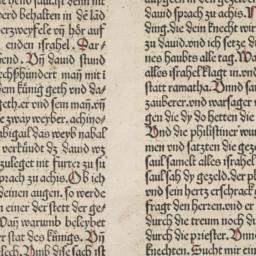 werd behalten in de läd
erzweyfele vñ hör auf
enden israhel. Dar-
hend. Vñ dauid stund
echßhundert mañ mit i
dem künig geth vnd da-
geth. er vnd sein mañ. vñ
e zway weyber. achino-
abigail das weyb nabal
verkündt dz dauid wz
zuleget nit fürter zu su
sprach zu achis. Ob ich
deinen augen. so werde
n einer der stett der ge-
Wañ warumb beleybet
er stat des künigs. Vñ
selech. Vmb dise sach ist
dauid sprach zu achis.
ding. die dein knecht wir
zu dauid. vnd ich setze d
nes haubts alle tag. Wa
alles israhel klagt in. vnd
statt ramatha. Vnnd sa
zauberer. vnd warsager
gen die dy do hetten die
Vnd die philistiner wur
men vnd satzten die gezel
saul samelt alles israhel
saul sah dy gezeld. der p
vnd sein hertz erschrack
fragt den herren. vnd er
durch die treum noch du
durch die priester. Vnn
knechten. Sucht mir ein